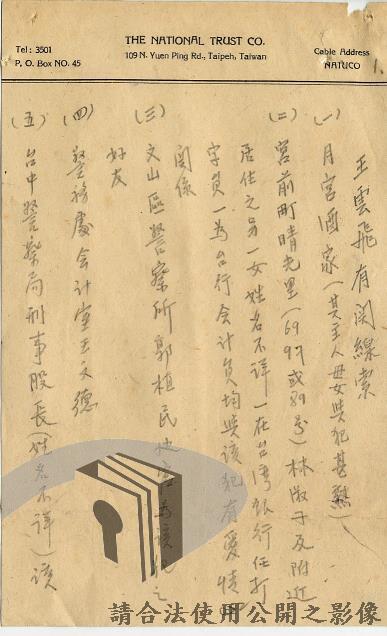 Tel: 3501
P. O. Box NO. 45
THE NATIONAL TRUST CO.
109 N. Yuen Ping Rd., Taipeh, Taiwan
Cable Address
NATUCO
1.
王雲飛有関線索
(一)月宮酒家(其主人母女與犯甚熟)
(二)宮前町晴光里(69 97或89号)林淑子及附近
居住之另一女姓名不詳一在台湾銀行任打
字員一為台行会计員均與該犯有愛情
関係
(三)文山區警察所郭植民
好友
(四)警務處会计室王文德
(五)台中警察局刑事股長(姓名不詳)該
請合法使用公開之影像